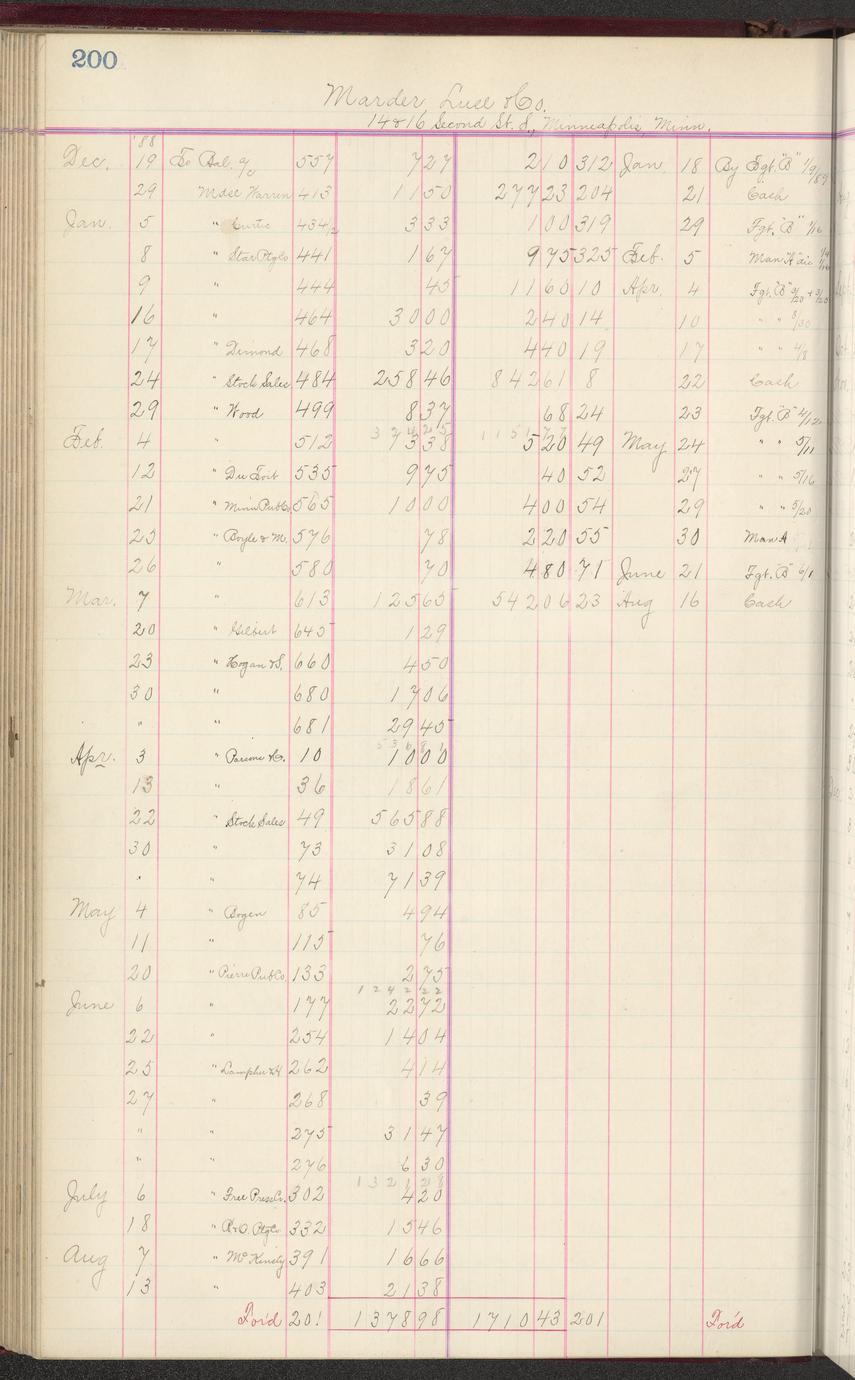 200
Marder, Luse & Co.
14 & 16 Second St. S., Minneapolis, Minn.
'88
Dec. 19 To Bal. 557 7 27 2 10 312 Jan. 18 By Fgt. "B" 1/9/89
29 Mdse Warren 413 11 50 277 23 204 21 Cash
Jan. 5 " Curtis 434 1/2 3 33 1 00 319 29 Fgt. "B" 1/16
8 " Star Ptg Co 441 1 67 9 75 325 Feb. 5 Man "A" dis
9 " 444 45 11 60 10 Apr. 4 Fgt. "B" 3/20 + 3/25
16 " 464 30 00 2 40 14 10 " " 3/30
17 " Dimond 468 3 20 4 40 19 17 " " 4/8
24 " Stock Sales 484 258 46 842 61 8 22 Cash
29 " Wood 499 8 37 68 24 23 Fgt. "B" 4/12
324 25 1151 77
Feb. 4 " 512 73 38 5 20 49 May 24 " " 5/11
12 " Du Toit 535 9 75 40 52 27 " " 5/16
21 " Minn Pub Co 565 10 00 4 00 54 29 " " 5/20
25 " Boyle & M. 576 78 2 20 55 30 Man A
26 " 580 70 4 80 71 June 21 Fgt. "B" 6/1
Mar. 7 " 613 125 65 542 06 23 Aug 16 Cash
20 " Gilbert 645 1 29
23 " Hogan & S. 660 4 50
30 " 680 17 06
" " 681 29 45
536 81
Apr. 3 " Parsons & Co. 10 10 00
13 " 36 18 61
22 " Stock Sales 49 565 88
30 " 73 31 08
" " 74 71 39
May 4 " Bogen 85 4 94
11 " 115 76
20 " Pierre Pub Co. 133 2 75
1242 22
June 6 " 177 22 72
22 " 254 14 04
25 " Lampher & H 262 4 14
27 " 268 39
" " 275 31 47
" " 276 6 30
1321 28
July 6 " Free Press Co. 302 4 20
18 " Ptg Co 332 15 46
Aug 7 " McKinsty 391 16 66
13 " 403 21 38
For'd 201 1378 98 1710 43 201 For'd